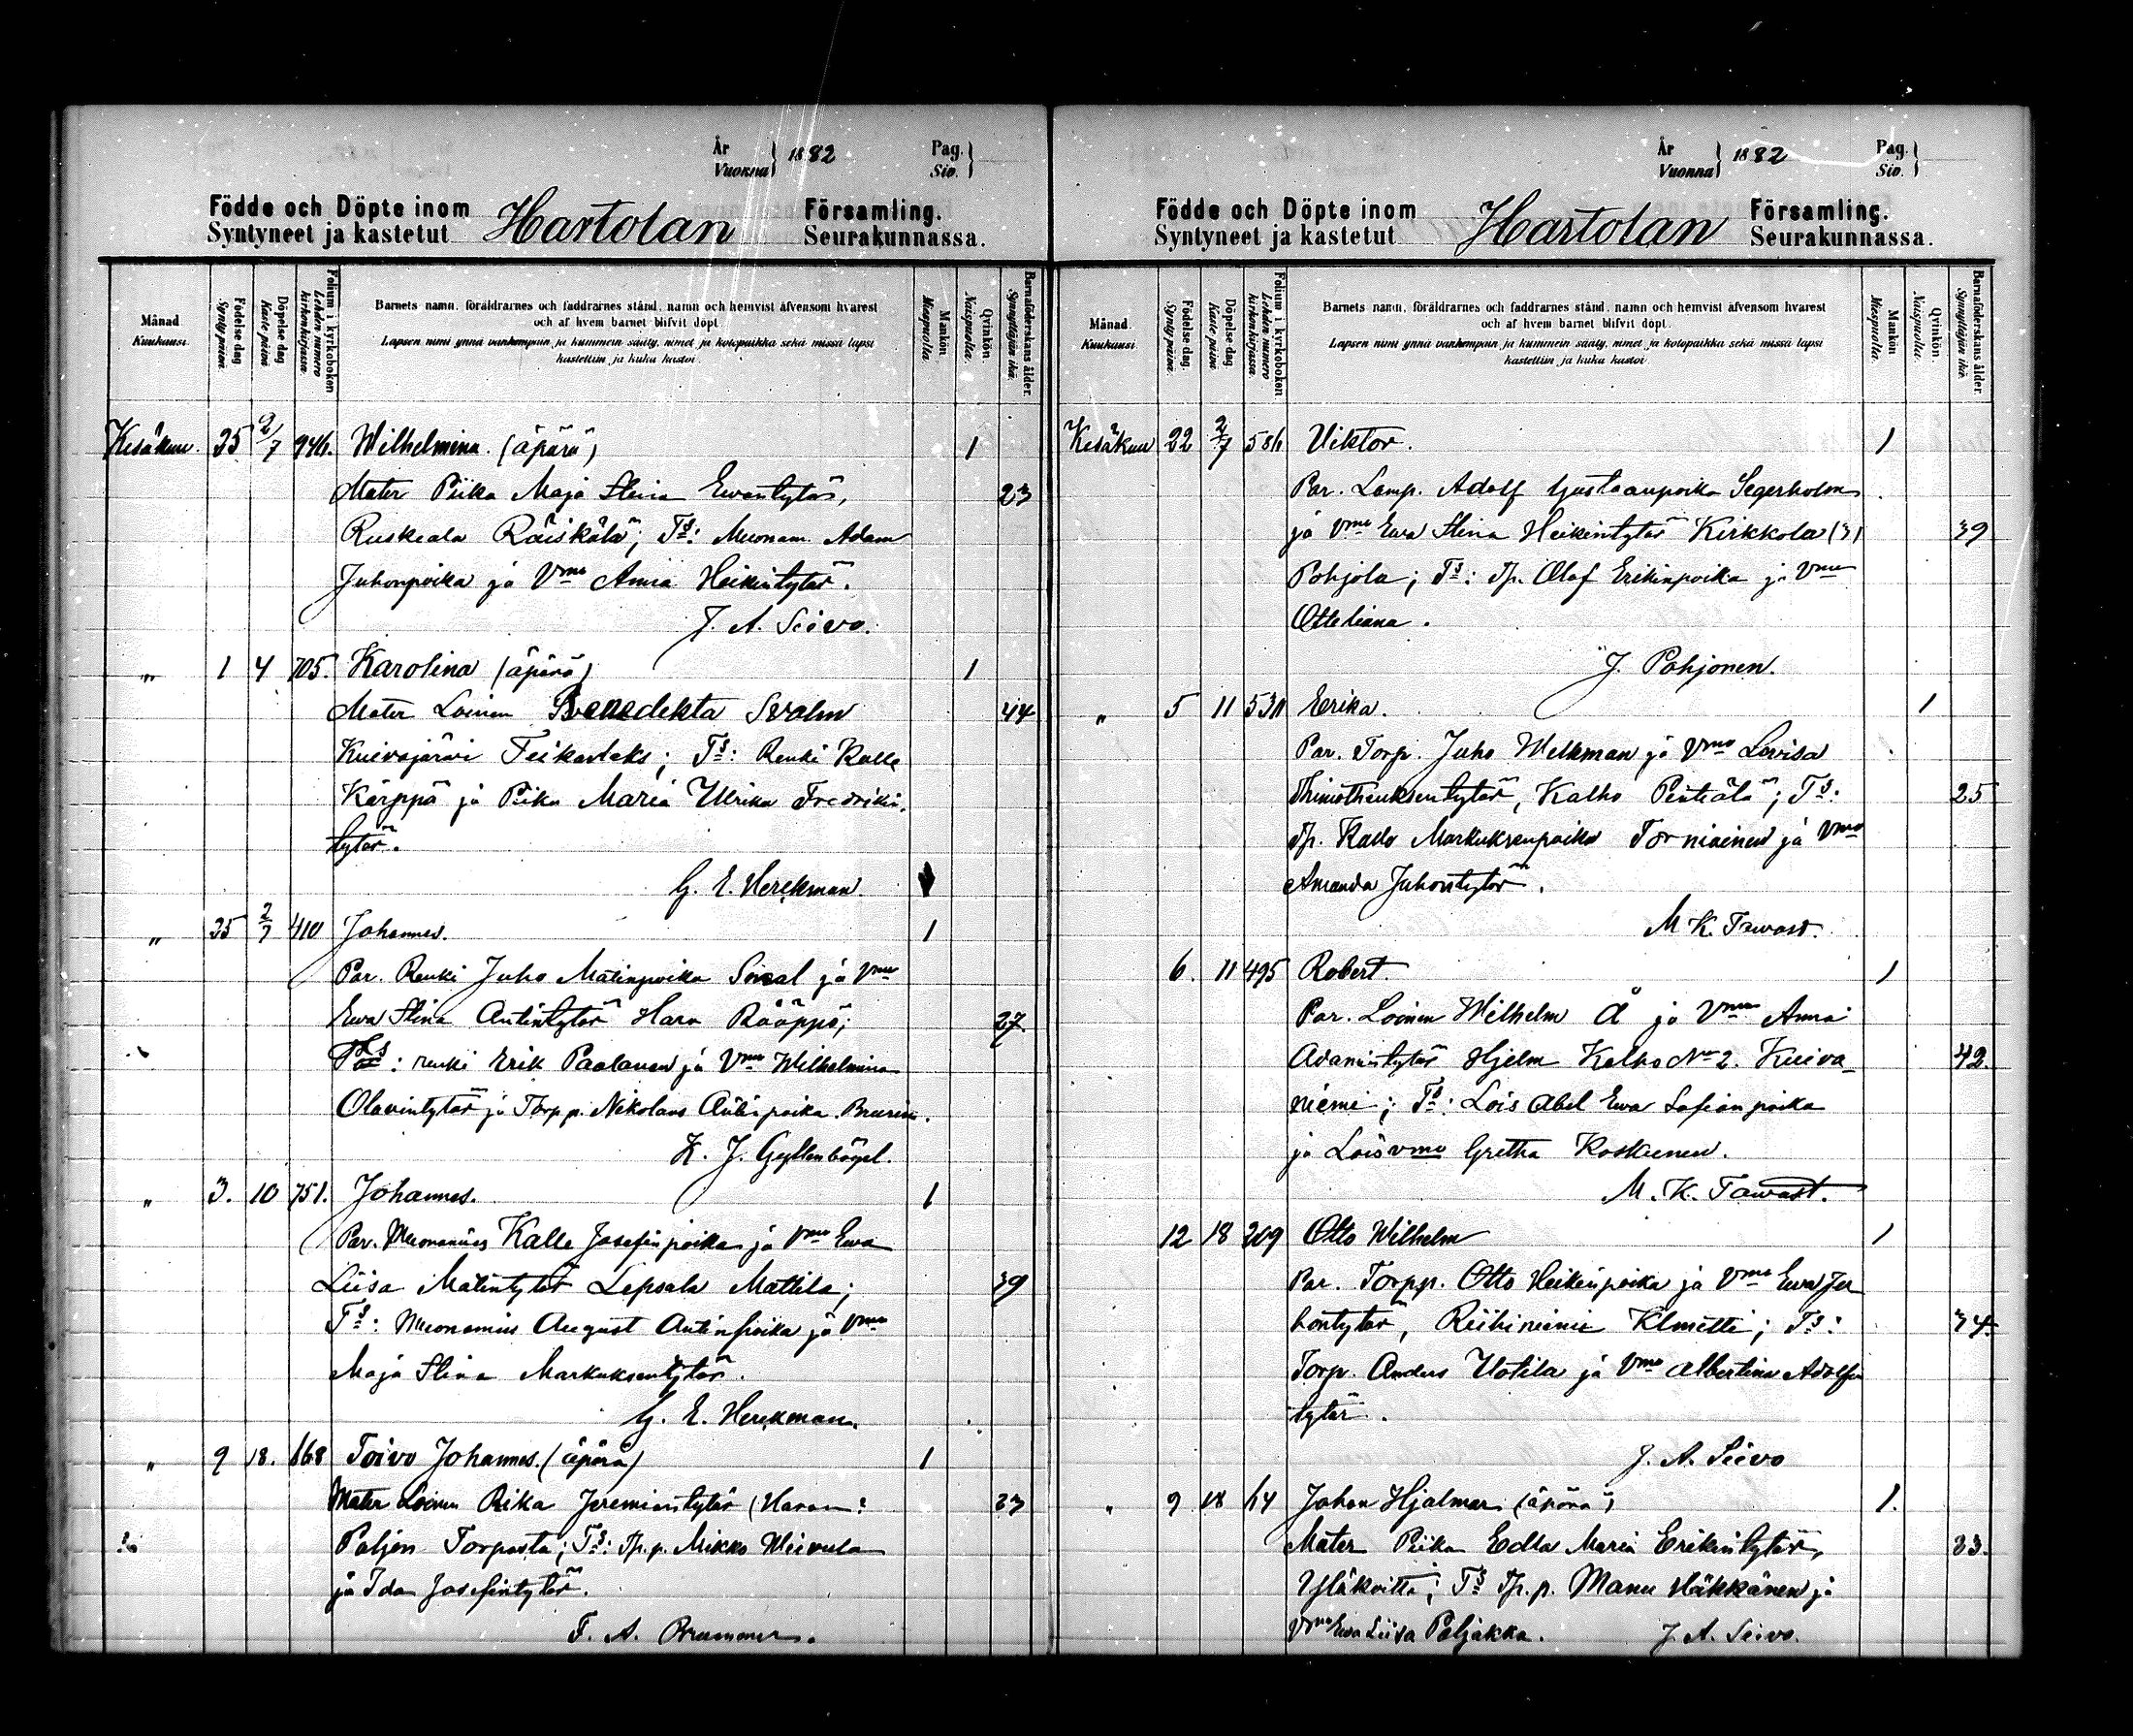 År
Vuonna } 1882
Pag.
Siv. }
Födde och Döpte inom
Syntyneet ja kastetut Hartolan Församling.
Seurakunnassa.
Månad
Kuukausi.
Födelse dag
Synty päivä.
Döpelse dag
Kaste päivä
Folium i kyrkoboken
Lehden numero
kirkonkirjassa.
Barnets namn, föräldrarnes och faddrarnes stånd, namn och hemvist äfvensom hvarest
och af hvem barnet blifvit döpt
Lapsen nimi ynnä vanhempain ja kummein sääty, nimet ja kotopaikka sekä missä lapsi
kastettiin ja kuka kastoi.
Mankön
Miespuolta.
Qvinkön.
Naispuolta.
Barnaföderskans ålder.
Synnyttäjän ikä.
Kesäkuu. 25 2/7 946. Wilhelmina. (äpärä) 1
Mater Piika Maja Stina Ewantytär, 23
Ruskeala Räiskälä; Ts: Muonam. Adam
Juhonpoika ja Vmo Anna Heikintytär.
J. A. Seivo.
„ 1 4 705. Karolina (äpärä) 1
Mater Loinen Benedekta Svalm 44
Kuivajärvi Feikarteks; Ts: Renki Kalle
Kärppä ja Piika Maria Ulrika Fredrikin-
tytär.
G. E. Herckman.
„ 25 2/7 410 Johannes. 1
Par. Renki Juho Matinpoika ja Vmo
Ewa Stina Antintytär Hara Rääppö; 27.
Ts: renki Erik Paalanen ja Vmo Wilhelmina
Olavintytär ja Torpp. Nikolaus Antinpoika.
K. J. Gyllenbögel.
„ 3. 10 751. Johannes. 1
Par. Muonamies Kalle Josefinpoika ja Vmo Ewa
Liisa Matintytär Lepsala Mattila; 39
Ts: Muonamies August Antinpoika ja Vmo
Maja Stina Markuksentytär.
G. E. Herckman.
„ 9 18. 668 Toivo Johannes. (äpärä) 1
Mater Loinen Rika Jeremiantytär (Haran: 23
Paljen Torpasta; Ts: Tp.p. Mikko
ja Ida Josefintytär.
F. A. Brummer.
År
Vuonna } 1882
Pag.
Siv. }
Födde och Döpte inom
Syntyneet ja kastetut Hartolan Församling.
Seurakunnassa.
Månad.
Kuukausi.
Födelse dag.
Synty päivä.
Döpelse dag
Kaste päivä
Folium i kyrkoboken
Lehden numero
kirkonkirjassa.
Barnets namn, föräldrarnes och faddrarnes stånd, namn och hemvist äfvensom hvarest
och af hvem barnet blifvit döpt.
Lapsen nimi ynnä vanhempain ja kummein sääty, nimet ja kotopaikka sekä missä lapsi
kastettiin ja kuka kastoi.
Mankön
Miespuolta.
Qvinkön.
Naispuolta.
Barnaföderskans ålder
Synnyttäjän ikä.
Kesäkuu 22 2/7 586 Viktor. 1
Par. Lamp. Adolf Gustaanpoika Segerholm
ja Vmo Ewa Stina Heikintytär Kirkkola (3) 39
Pohjola; Ts: Tp. Olof Erikinpoika ja Vmo
Otteliana.
J. Pohjonen.
„ 5 11 530 Eerika. 1
Par. Torp. Juho Welkman ja Vmo Lovisa
Thimotheuksentytär, Kalho Penttälä; Ts: 25
Tp. Kalle Markuksenpoika Torniainen ja Vmo
Amanda Juhontytär.
M K. Tawast.
6. 11 495 Robert. 1
Par. Loinen Wilhelm Å ja Vmo Anna
Adamintytär Hjelm Kalho No 2. Kuiva- 42.
niemi; Ts: Lois Abel Ewa Sofianpoika
ja Loisvmo Gretha Koskinen.
M. K. Tawast.
12 18 209 Otto Wilhelm 1
Par. Torpp. Otto Heikinpoika ja Vmo Ewa Ju
hontytär, Riihiniemi Klmetti; Ts: 34.
Torp. Anders Uotila ja Vmo Albertina Adolfin
tytär.
J. A. Seivo
„ 9 18 64 Johan Hjalmar (äpärä) 1.
Mater Piika Edla Maria Erikintytär, 23.
Yläkoitti; Ts Tp.p. Manu Häkkänen ja
Vmo Ewa Liisa Paljakka. J. A. Seivo.